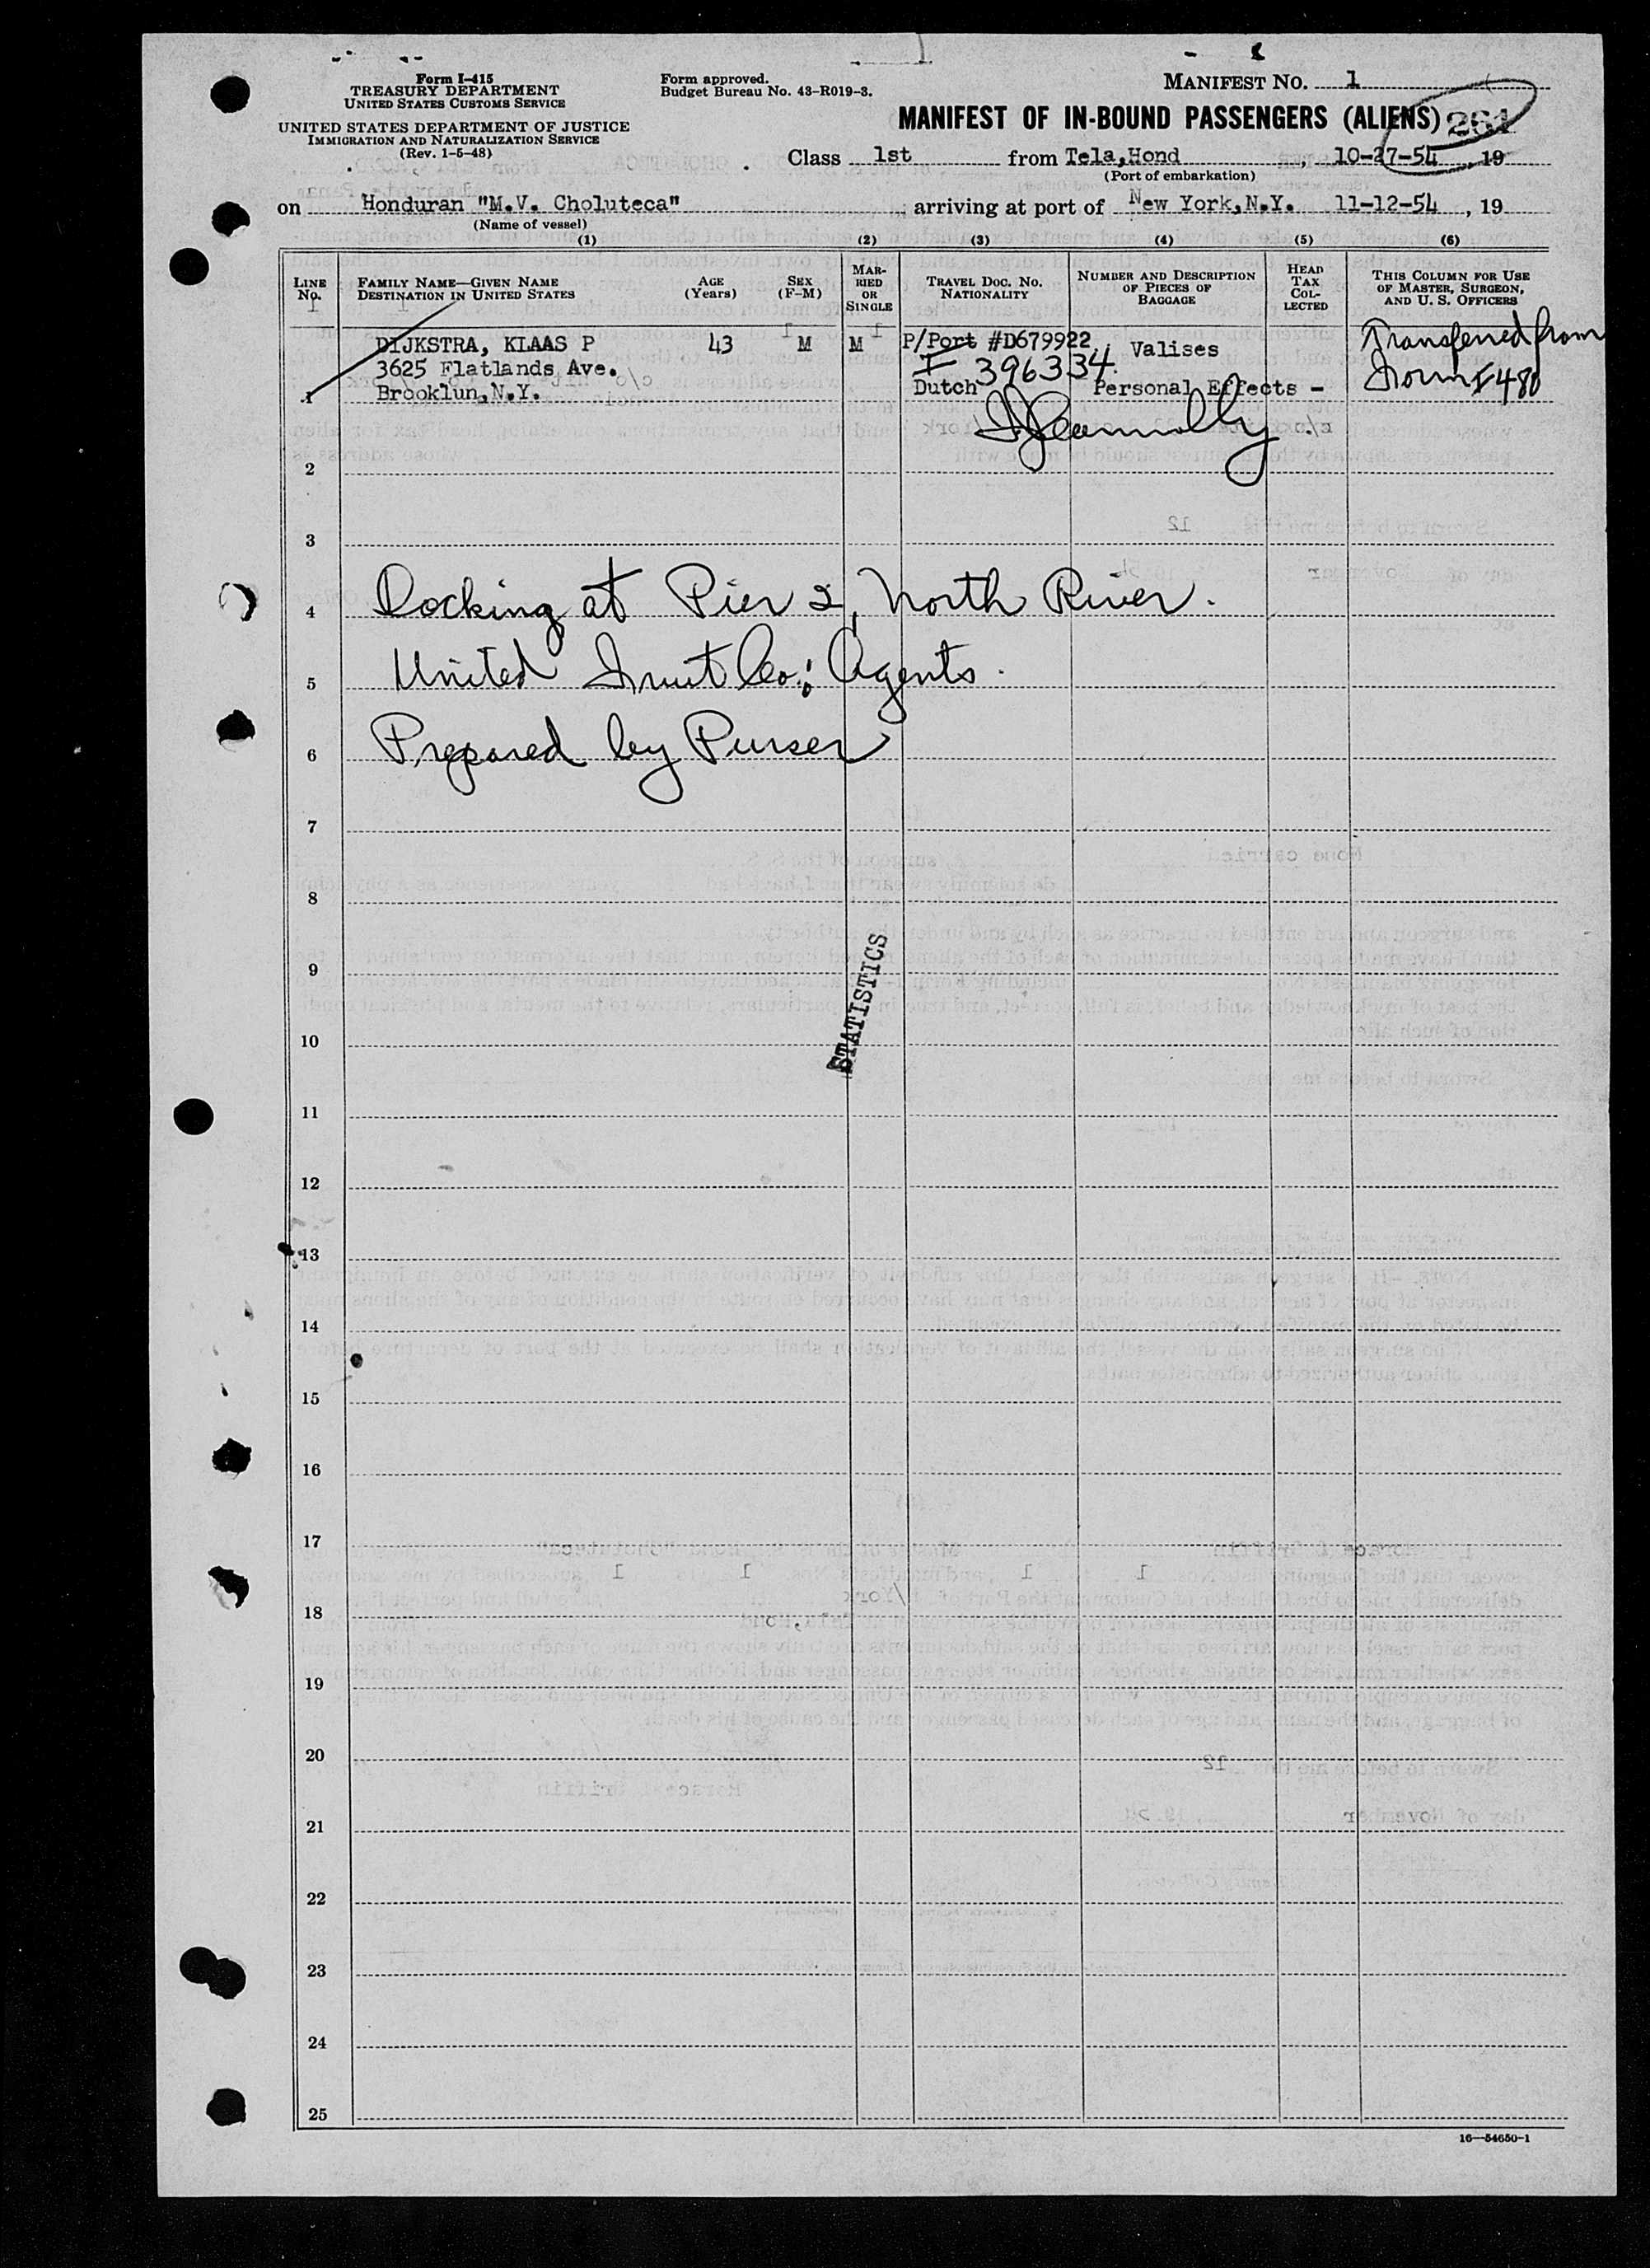 Form I-415
TREASURY DEPARTMENT
UNITED STATES CUSTOMS SERVICE
UNITED STATES DEPARTMENT OF JUSTICE
IMMIGRATION AND NATURALIZATION SERVICE
(Rev. 1-5-48)
Form approved.
Budget Bureau No. 43-R019-3.
MANIFEST NO. 1
MANIFEST OF IN-BOUND PASSENGERS (ALIENS) 261
Class 1st from Tela,Hond, 10-27-54, 19
(Port of embarkation)
on Honduran "M.V. Choluteca", arriving at port of New York,N.Y. 11-12-54, 19
(Name of vessel)
(1) (2) (3) (4) (5) (6)
LINE No. FAMILY NAME—GIVEN NAME DESTINATION IN UNITED STATES AGE (Years) SEX (F-M) MARRIED OR SINGLE TRAVEL DOC. NO. NATIONALITY NUMBER AND DESCRIPTION OF PIECES OF BAGGAGE HEAD TAX COLLECTED THIS COLUMN FOR USE OF MASTER, SURGEON, AND U. S. OFFICERS
DIJKSTRA, KLAAS P 43 M M P/Port #D679922 4 Valises Transferred from
3625 Flatlands Ave. I 396334 Form I 480
Brooklun,N.Y. Dutch Personal Effects -
1
2
3
4 Docking at Pier 2, North River.
5 United Fruit Co; Agents.
6 Prepared by Purser
7
8
9
STATISTICS
10
11
12
13
14
15
16
17
18
19
20
21
22
23
24
25
16—54650-1